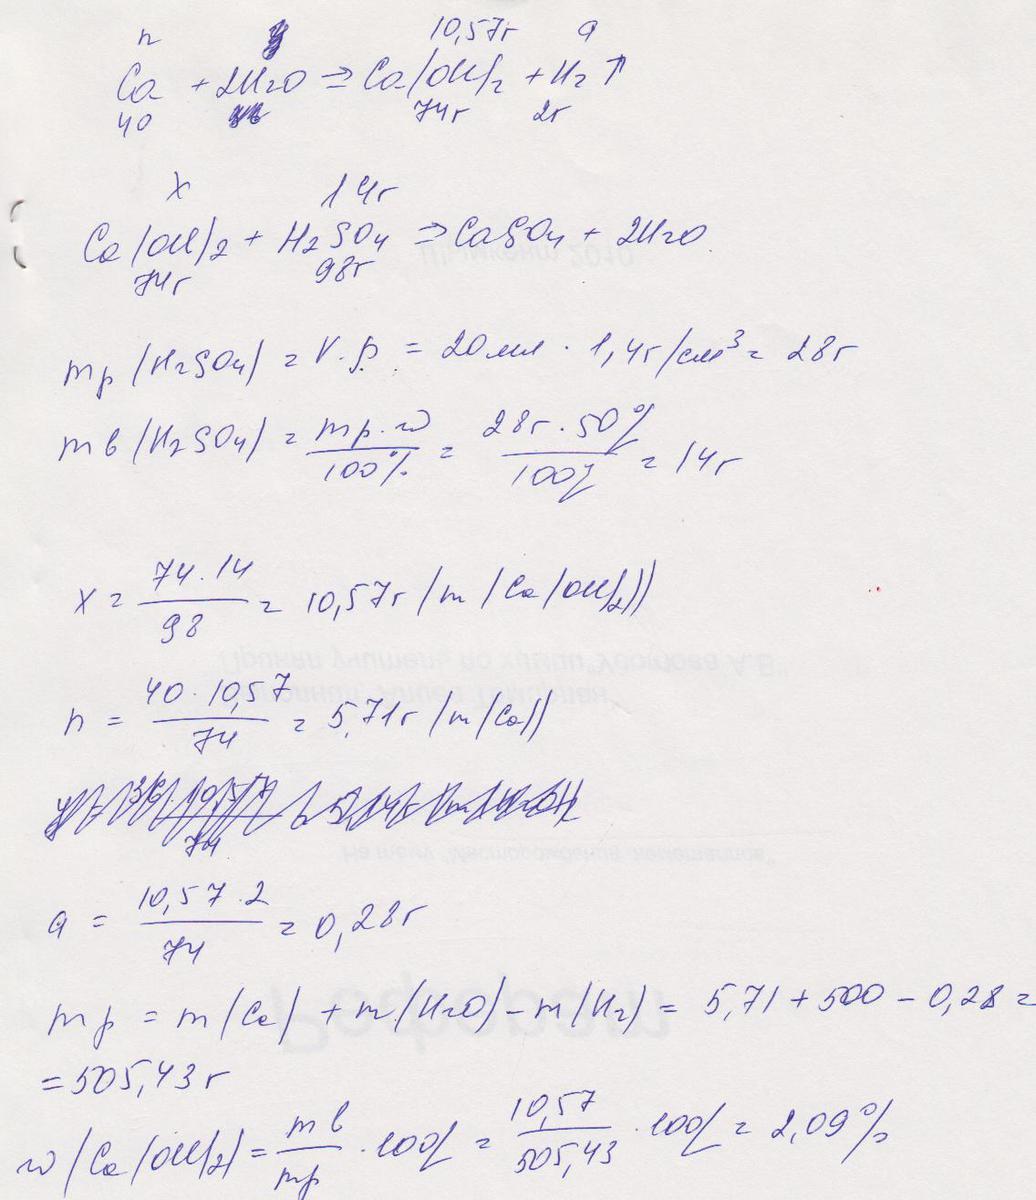 n 10,57г a
Ca + 2H2O => Ca(OH)2 + H2↑
40 74г 2г
x 14г
Ca(OH)2 + H2SO4 => CaSO4 + 2H2O
74г 98г
mр (H2SO4) = V·ρ = 20мл · 1,4г/см³ = 28г
mв (H2SO4) = mр·w / 100% = 28г · 50% / 100% = 14г
x = 74·14 / 98 = 10,57г (m (Ca(OH)2))
n = 40·10,57 / 74 = 5,71г (m(Ca))
74
a = 10,57·2 / 74 = 0,28г
mр = m(Ca) + m(H2O) - m(H2) = 5,71 + 500 - 0,28 =
= 505,43г
w (Ca(OH)2) = mв / mр · 100% = 10,57 / 505,43 · 100% = 2,09%